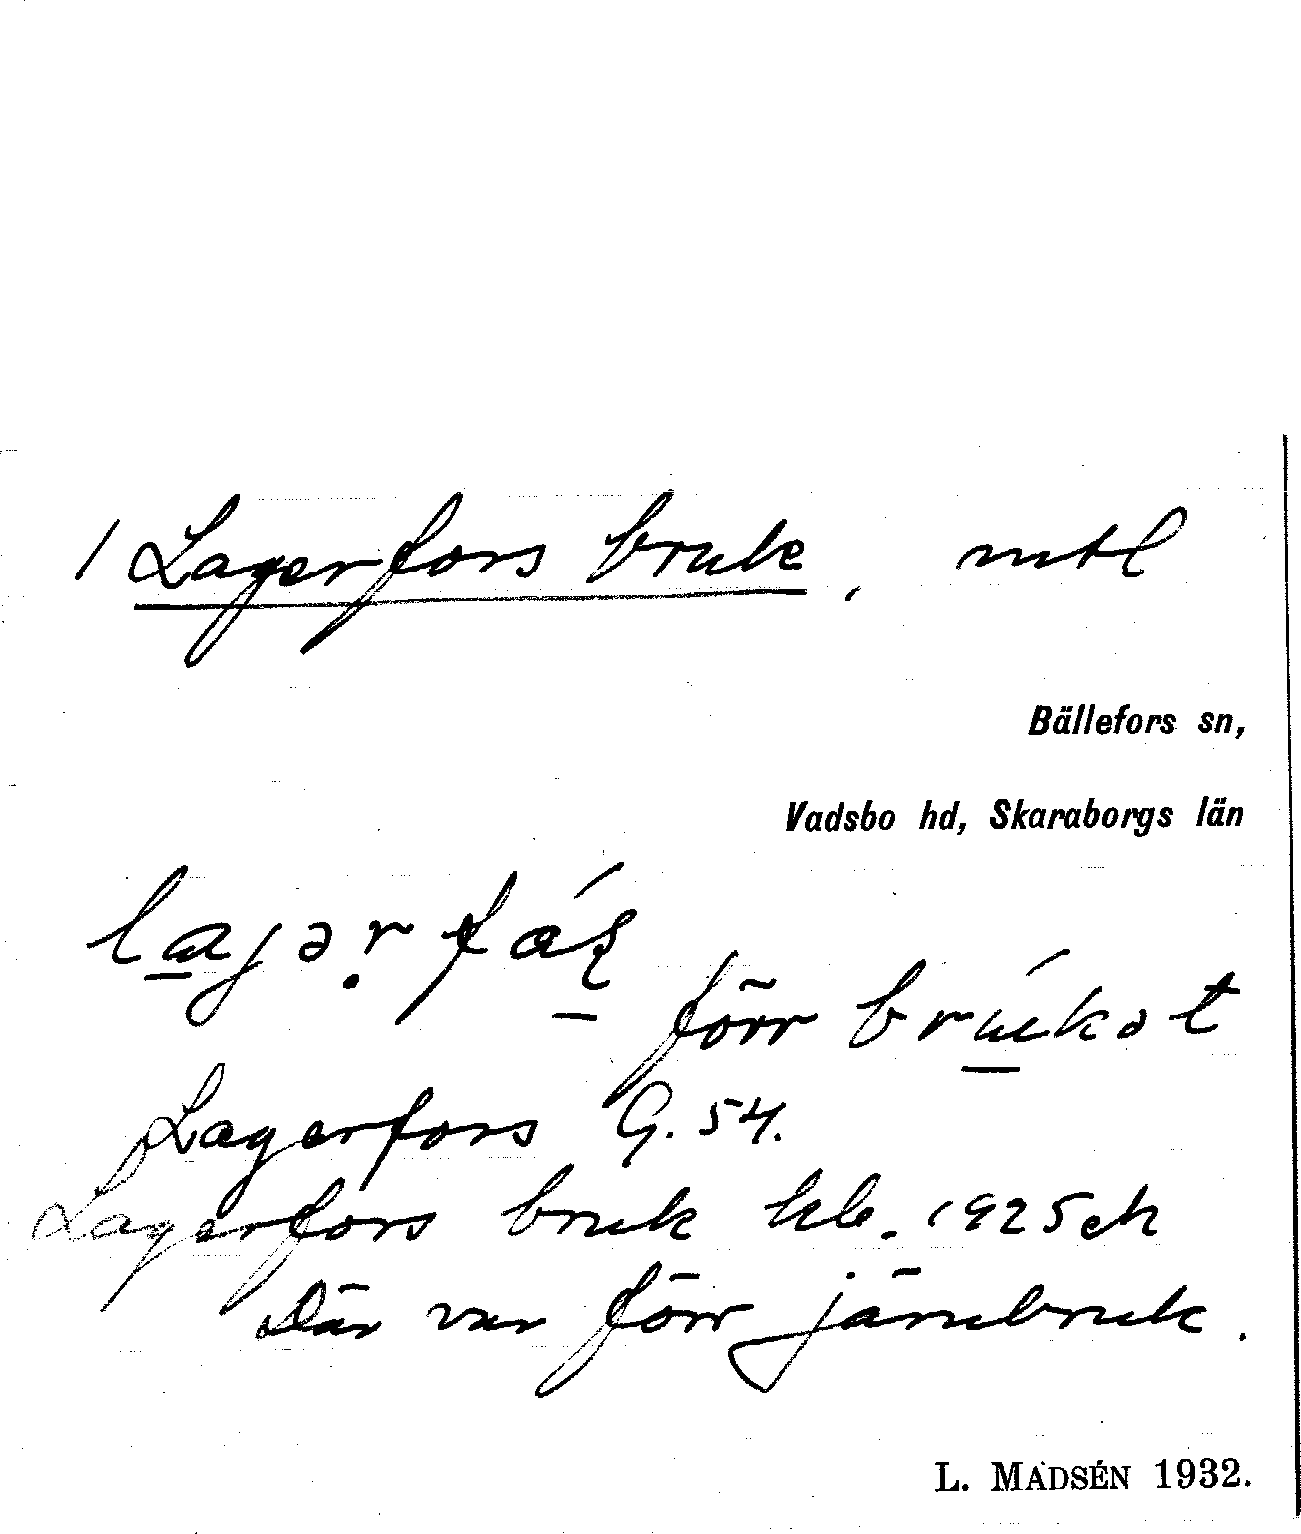 1 Lagerfors bruk, mtl
Bällefors sn,
Vadsbo hd, Skaraborgs län
förr brúkət
Lagerfors G. 54.
Lagerfors bruk kb. 1925 ek
Där var förr järnbruk.
L. MADSÉN 1932.